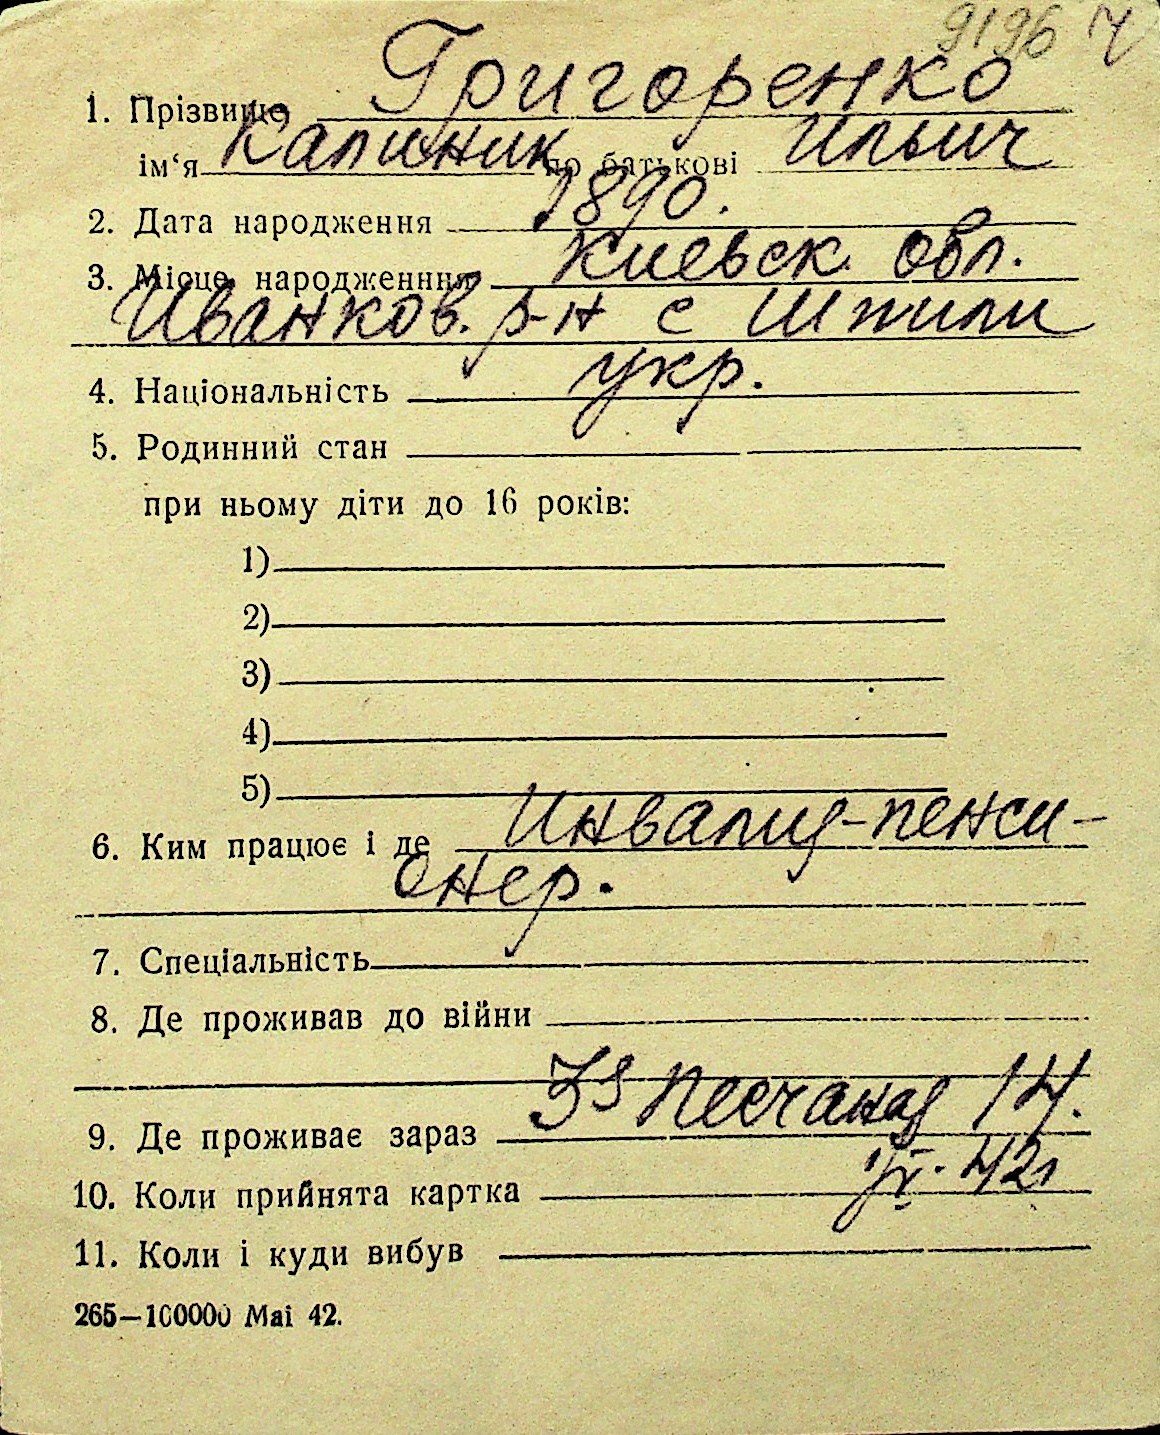 9196 Ч
1. Прізвище Григоренко
ім‘я Калиник по батькові Ильич
2. Дата народження 1890.
3. Місце народженння Киевск. обл.
Иванков. р-н с Шпили
4. Національність укр.
5. Родинний стан
при ньому діти до 16 років:
1)
2)
3)
4)
5)
6. Ким працює і де Инвалид-пенси-
онер.
7. Спеціальність
8. Де проживав до війни
9. Де проживає зараз Песчаная 14.
10. Коли прийнята картка 42
11. Коли і куди вибув
265—100000 Mai 42.